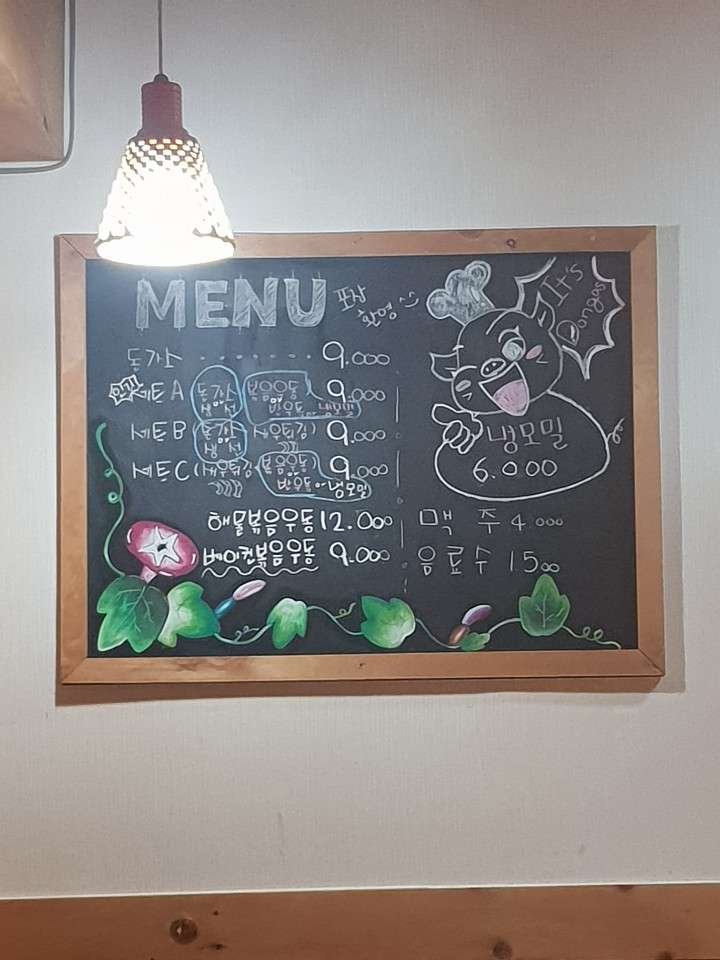 MENU 포장
환영
It's
Dongas
돈가스 ······· 9.000
인기 세트 A 돈가스 볶음우동 9.000
생선 반우동 or 냉모밀
세트 B (돈가스 새우튀김) 9.000
생선
세트 C (새우튀김 볶음우동) 9.000
반우동 or 냉모밀
냉모밀
6.000
해물볶음우동 12.000
베이컨볶음우동 9.000
맥 주 4.000
음료수 1500